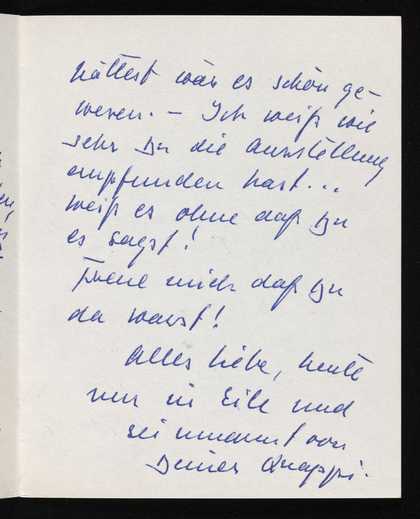 hättest wär es schön ge-
wesen. – Ich weiß wie
sehr Du die Ausstellung
empfunden hast...
weiß es ohne daß Du
es sagst!
Freue mich daß Du
da warst!
Alles liebe, heute
nur in Eile und
sei umarmt von
Deiner Quappi.